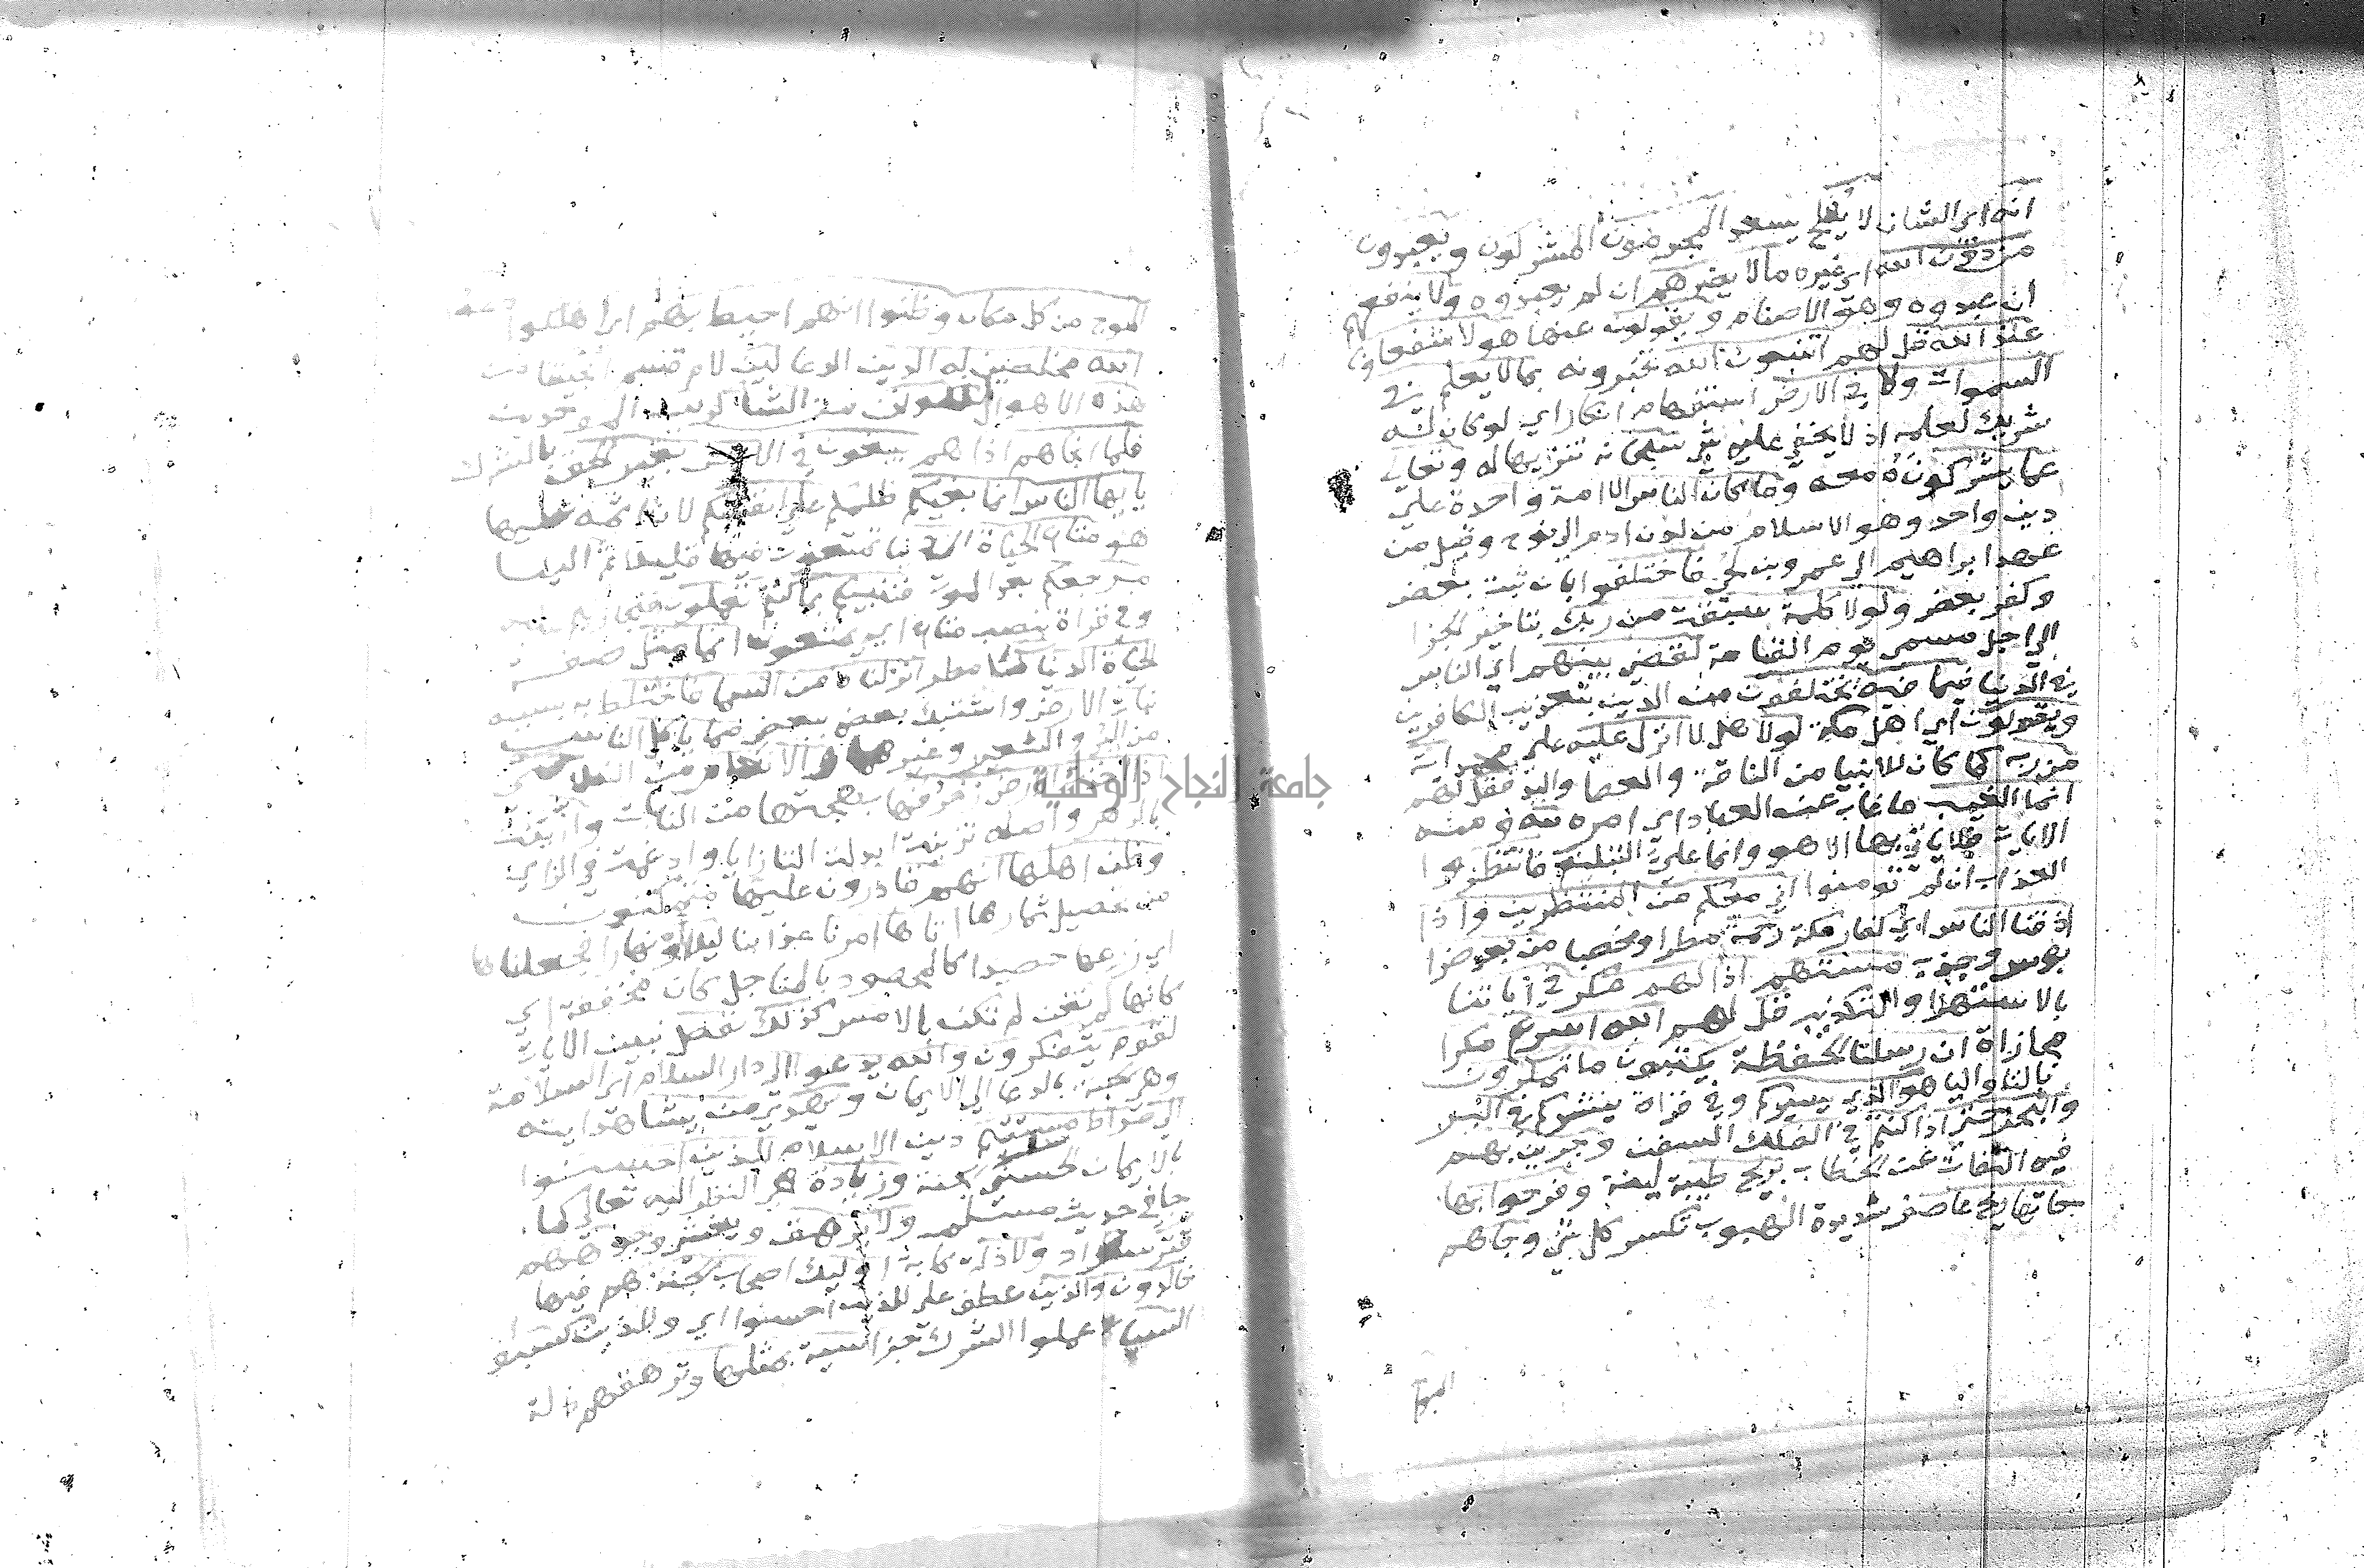 انه اي الشان لا يفلح يسعد المجرمون المشركون ويعبدون
من دون الله اي غيره مالا يضرهم ان لم يعبدوه ولا ينفعهم
ان عبدوه وهو الاصنام ويقولون عنها هولا شفعاونا
عند الله قل لهم اتنبون الله تخبرونه بمالا يعلم في
السموات ولا في الارض استفهام انكار اي لو كان له
شريك لعلمه اذ لا يخفي عليه شي سبحانه تنزيها له وتعالي
عما يشركونه معه وما كان الناس الا امة واحدة علي
دين واحد وهو الاسلام من لدن ادم الي نوح وقيل من
عهد ابراهيم الي عمرو بن لحي فاختلفوا بان ثبت بعض
وكفر بعض ولولا كلمة سبقت من ربك بتاخير الجزا
الي اجل مسمي يوم القيامة لقضي بينهم اي الناس
في الدنيا فيما فيه يختلفون من الدين بتعذيب الكافرين
ويقولون اي اهل مكة لولا هلا انزل عليه علي محمد اية
من ربه كما كان للانبيا من الناقة والعصا واليد فقل لهم
انما الغيب ما غاب عن العباد اي امره لله ومنه
الايات فلا ياتي بها الا هو وانما علي التبليغ فانتظروا
العذاب ان لم تومنوا اني معكم من المنتظرين واذا
اذقنا الناس اي كفار مكة رحمة مطرا وخصبا من بعد ضرا
بوس وجدب مستهم اذا لهم مكر في اياتنا
بالاستهزا والتكذيب قل لهم الله اسرع مكرا
مجازاة ان رسلنا الحفظة يكتبون ما تمكرون
بالتا واليا هو الذي يسيركم وفي قراة ينشركم في البر
والبحر حتي اذا كنتم في الفلك السفن وجرين بهم
فيه التفات عن الخطاب بريح طيبة لينة وفرحوا بها
جاتها ريح عاصف شديدة الهبوب تكسر كل شي وجاهم
الموج
الموج من كل مكان وظنوا انهم احيط بهم اي اهلكوا دعوا
الله مخلصين له الدين الدعا لين لام قسم انجيتنا من
هذه الاهوال لنكونن من الشاكرين الموحدين
فلما انجاهم اذا هم يبغون في الارض بغير الحق بالشرك
يايها الناس انما بغيكم ظلمكم علي انفسكم لان اثمه عليها
هو متاع الحياة الدنيا تمتعون فيها قليلا ثم الينا
مرجعكم بعد الموت فننبيكم بما كنتم تعملون فنجازيكم عليه
وفي قراة بنصب متاع اي تمتعون انما مثل صفة
الحياة الدنيا كما مطر انزلناه من السما فاختلط به بسببه
نبات الارض واشتبك بعض ببعض مما ياكل الناس
من البر والشعير وغيرهما والانعام من الكلا حتي
اذا اخذت الارض زخرفها بهجتها من النبات وازينت
بالزهر واصله تزينت ابدلت التا زايا وادغمت في الزاي
وظن اهلها انهم قادرون عليها متمكنون
من تحصيل ثمارها اتاها امرنا عذابنا ليلا او نهارا فجعلناها
اي زرعها حصيدا كالمحصود بالمناجل كان مخففة اي
كانها لم تغن لم تكن بالامس كذلك نفصل نبين الايات
لقوم يتفكرون والله يدعوا الي دار السلام اي السلامة
وهي الجنة بالدعا الي الايمان ويهدي من يشا هدايته
الي صراط مستقيم دين الاسلام للذين احسنوا
بالايمان الحسني الجنة وزيادة هي النظر اليه تعالي كما
جا في حديث مسلم ولا يرهق ويغشي وجوههم
قتر سواد ولا ذلة كابة اوليك اصحاب الجنة هم فيها
خالدون والذين عطف علي للذين احسنوا اي وللذين كسبوا
السيات عملوا الشرك جزا سيية بمثلها وترهقهم ذلة
جامعة النجاح الوطنية